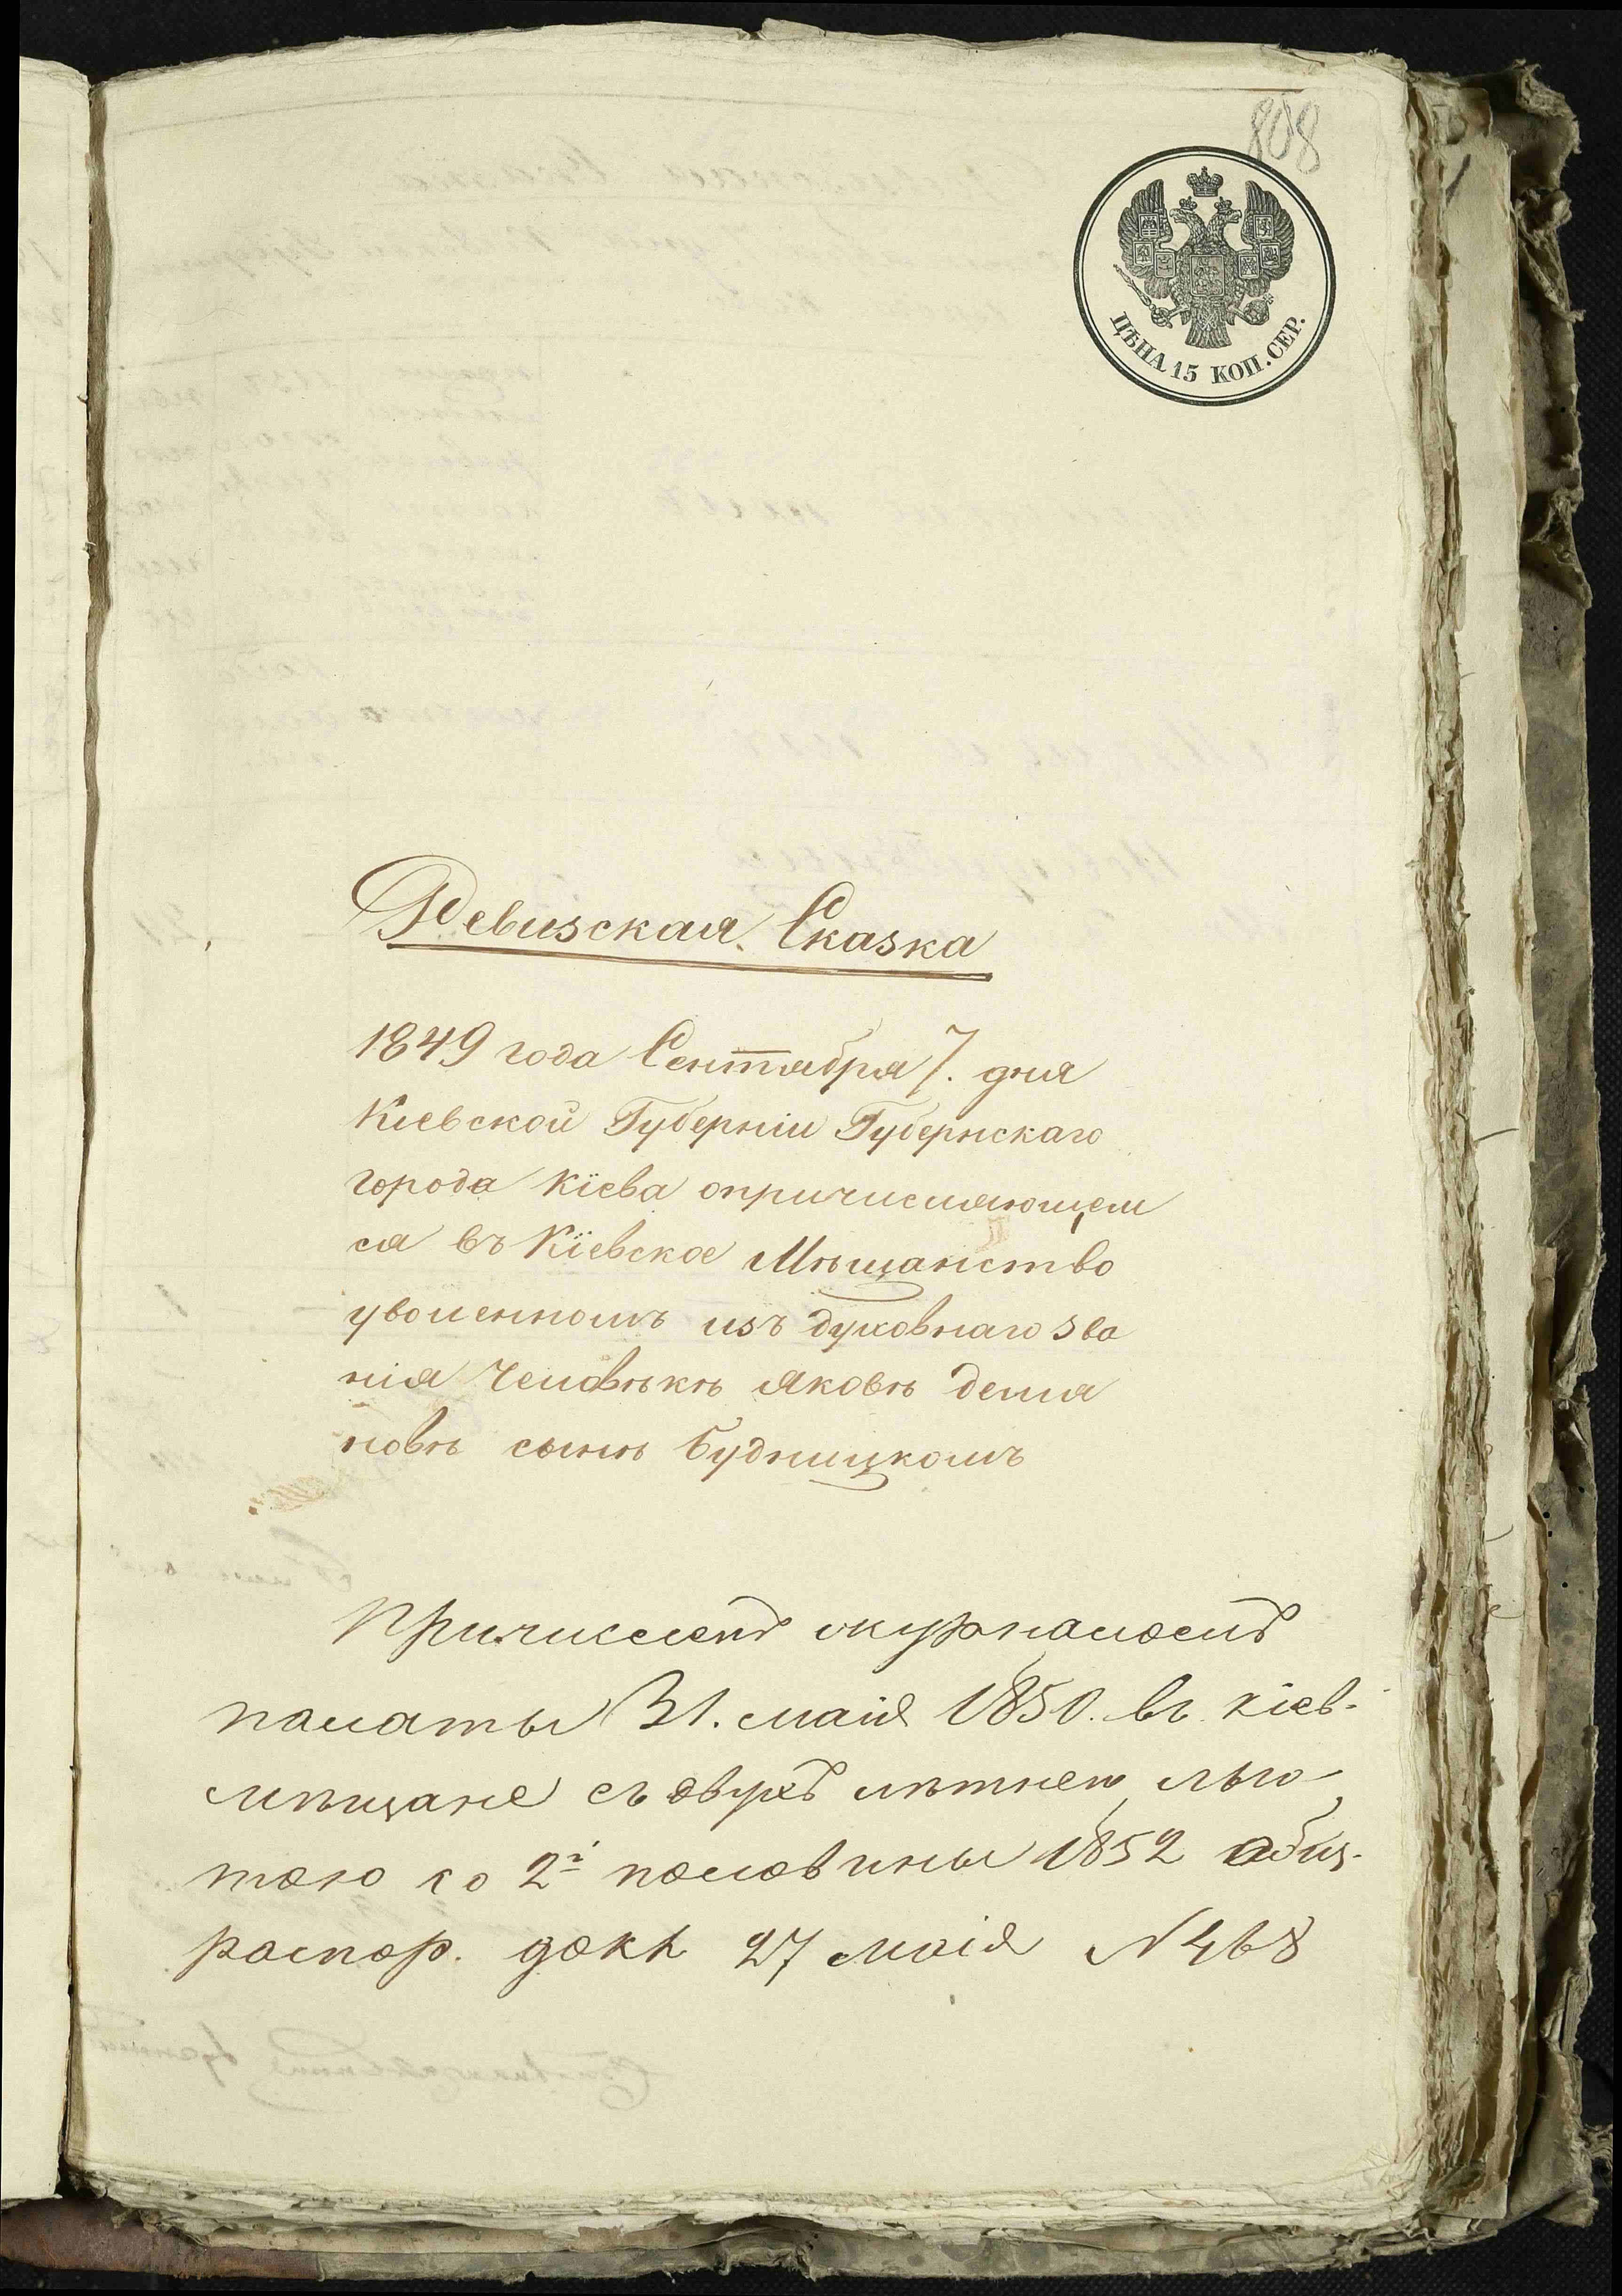 808
ЦѢНА 15 КОП. СЕР.
Ревизская Сказка
1849 года Сентября 7. дня
Кіевской Губерніи Губернскаго
города Кіева опричисляющем
ся въ Кіевское Мѣщанство
уволенномъ изъ духовнаго зва
нія Человѣкѣ Яковѣ Демя
новѣ сынѣ Будницкомъ
Причисленъ журналомъ
палаты 31. маія 1850. въ кіев.
мѣщане съ двухъ лѣтнею льго
тою со 2й половины 1852
распор. докл 27 маія N 468